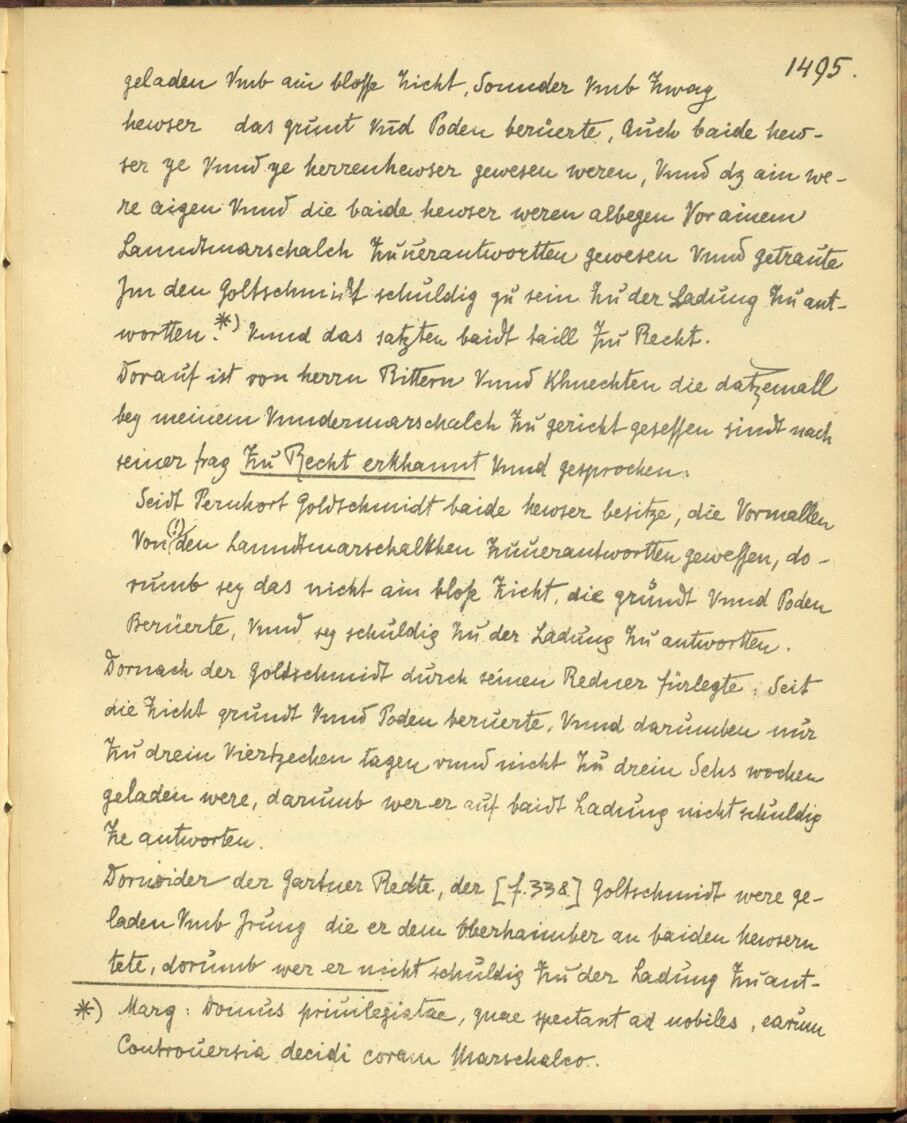 1495.
geladen Vmb ain blosse Zicht, Sonnder Vmb Zway
hewser das grunt Vnd Poden berüerte, Auch baide hew-
ser ye Vnnd ye herrenhewser gewesen weren, Vnnd dz ain we-
re aigen Vnnd die baide hewser weren albegen Vor ainem
Lanndtmarschalch Zuuerantwortten gewesen Vnnd getraute
Im den Goltschmidt schuldig zu sein Zu der Ladung Zu ant-
wortten.*) Vnnd das satzten baidt taill Zu Recht.
Dorauf ist von herrn Rittern Vnnd Khnechten die datzemall
bey meinem Vnndermarschalch Zu gericht gesessen sindt nach
seiner frag Zu Recht erkhannt Vnnd gesprochen.
Seidt Pernhort Goldschmidt baide hewser besitze, die Vormallen
Von (!) den Lanndtmarschalkhen Zuuerantwortten gewessen, do-
rumb sey das nicht ain blosse Zicht, die gründt Vnnd Poden
Berüerte, Vnnd sey schuldig Zu der Ladung Zu antwortten.
Dornach der Goldschmidt durch seinen Redner fürlegte, Seit
die Zicht grundt Vnnd Poden beruerte, Vnnd darumben nur
Zu drein Viertzechen tagen vnnd nicht Zu drein Sehs wochen
geladen were, darumb wer er auf baidt Ladung nicht schuldig
Ze antworten.
Dorwider der Gartner Redte, der [f.338] Goltschmidt were ge-
laden Vmb Irung die er dem Oberhaimber an baiden hewsern
tete, dorumb wer er nicht schuldig Zu der Ladung Zu ant-
*) Marg: Domus priuilegiatae, quae spectant ad nobiles, earum
Controuersia decidi coram Marschalco.